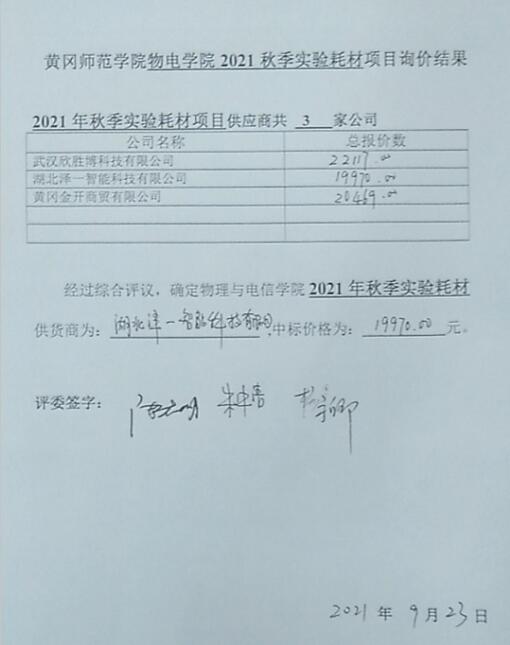 黄冈师范学院物电学院 2021 秋季实验耗材项目询价结果
2021 年秋季实验耗材项目供应商共 3 家公司
公司名称 总报价数
武汉欣胜博科技有限公司 22117.00
湖北泽一智能科技有限公司 19970.00
黄冈金开商贸有限公司 20469.00
经过综合评议，确定物理与电信学院 2021 年秋季实验耗材
供货商为：湖北泽一智能科技有限公司 中标价格为： 19970.00 元。
评委签字：
2021 年 9 月 23 日